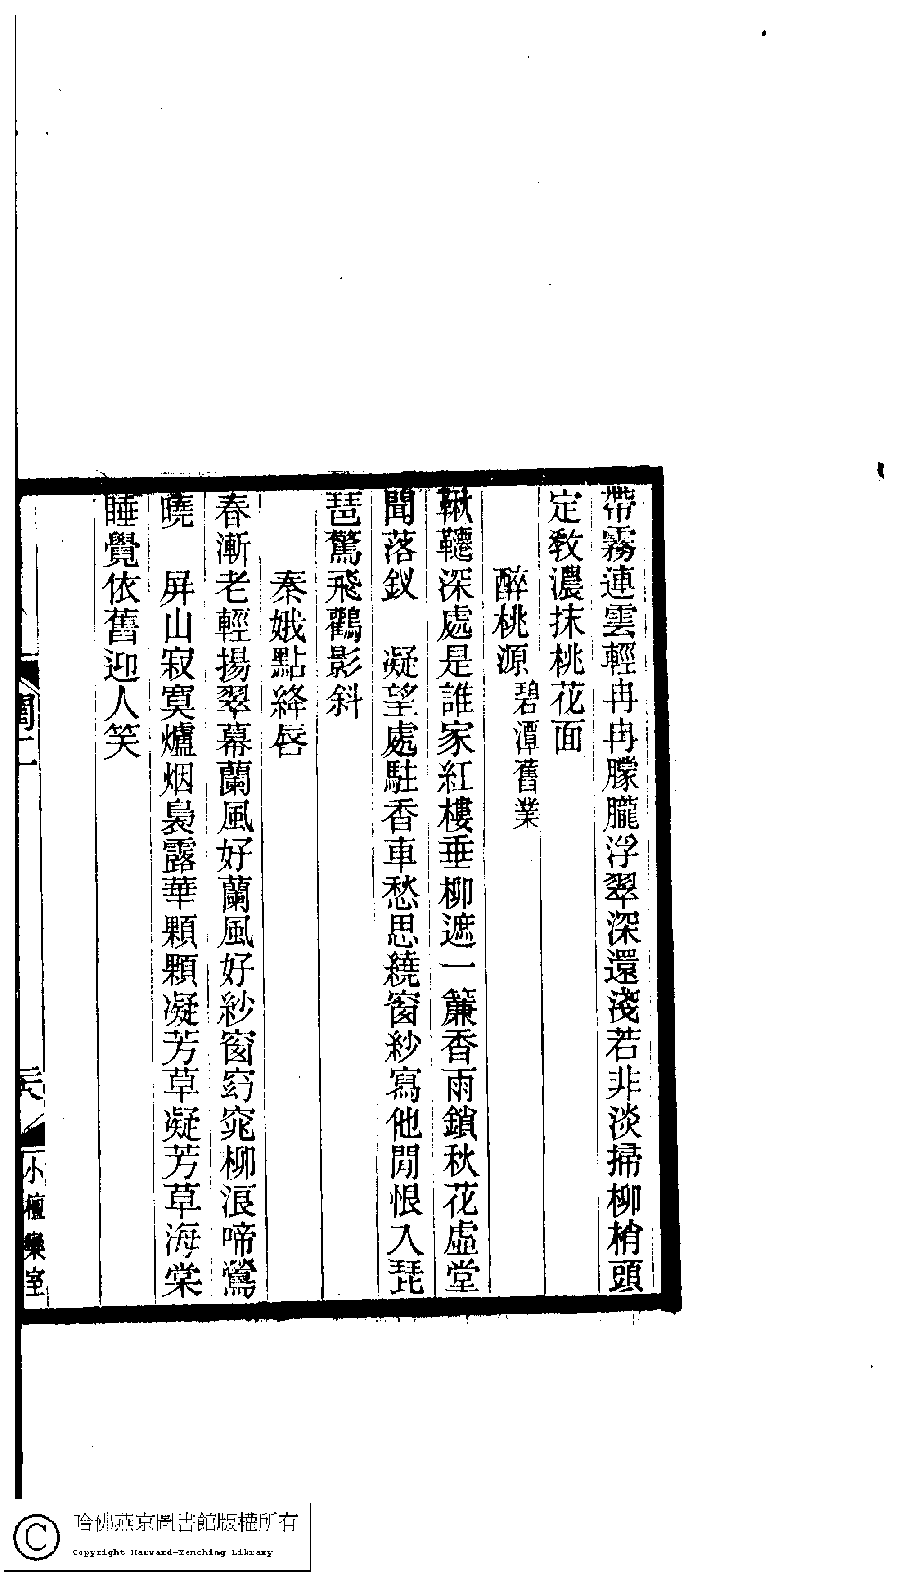 帶霧連雲輕冉冉朦朧浮翠深還淺若非淡掃柳梢頭
定教濃抹桃花面
醉桃源碧潭舊業
鞦韆深處是誰家紅樓垂柳遮一簾香雨鎖秋花虛堂
聞落釵　凝望處駐香車愁思繞窗紗寫他閒恨入琵
琶驚飛鸛影斜
秦娥點絳唇
春漸老輕揚翠幕蘭風好蘭風好紗窗窈窕柳浪啼鶯
曉　屏山寂寞爐烟裊露華顆顆凝芳草凝芳草海棠
睡覺依舊迎人笑
閏二
小檀欒室
哈佛燕京圖書館版權所有
Copyright Harvard-Yenching Library